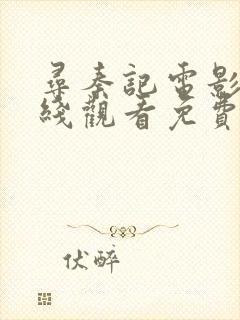 尋秦記電影
綫觀看免費
伏醉